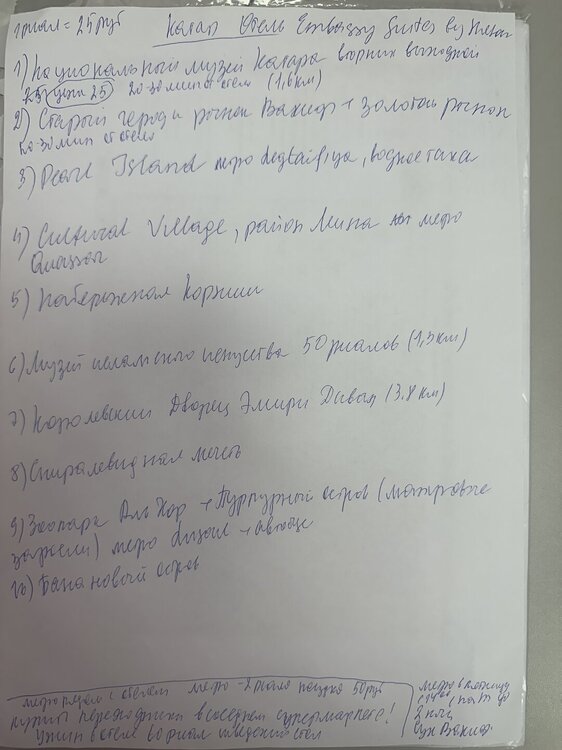 1 риал = 25 руб Катар Отель Embassy Suites by Hilton
1) Национальный музей Катара вторник выходной
25 цена 25 20-30 мин от отеля (1,6км)
2) Старый город и рынок Вакиф + Золотой рынок
20-30 мин от отеля
3) Pearl Island метро legtaifiya, водное такси
4) Cultural Village, район Мина метро
5) Набережная Корниш
6) Музей исламского искусства 50 риалов (1,3км)
7) Королевский Дворец Эмири Диван (3.8 км)
8) Спиралевидная мечеть
9) Зоопарк Аль Хор + Пурпурный остров (мангровые
заросли) метро Lusail + автобус
10) Банановый остров
метро рядом с отелем метро - 2 риала поездка 50 руб
купить переходники в соседнем супермаркете!
Ужин в отеле 60 риал шведский стол
метро в пятницу
2 ночи
Вакиф